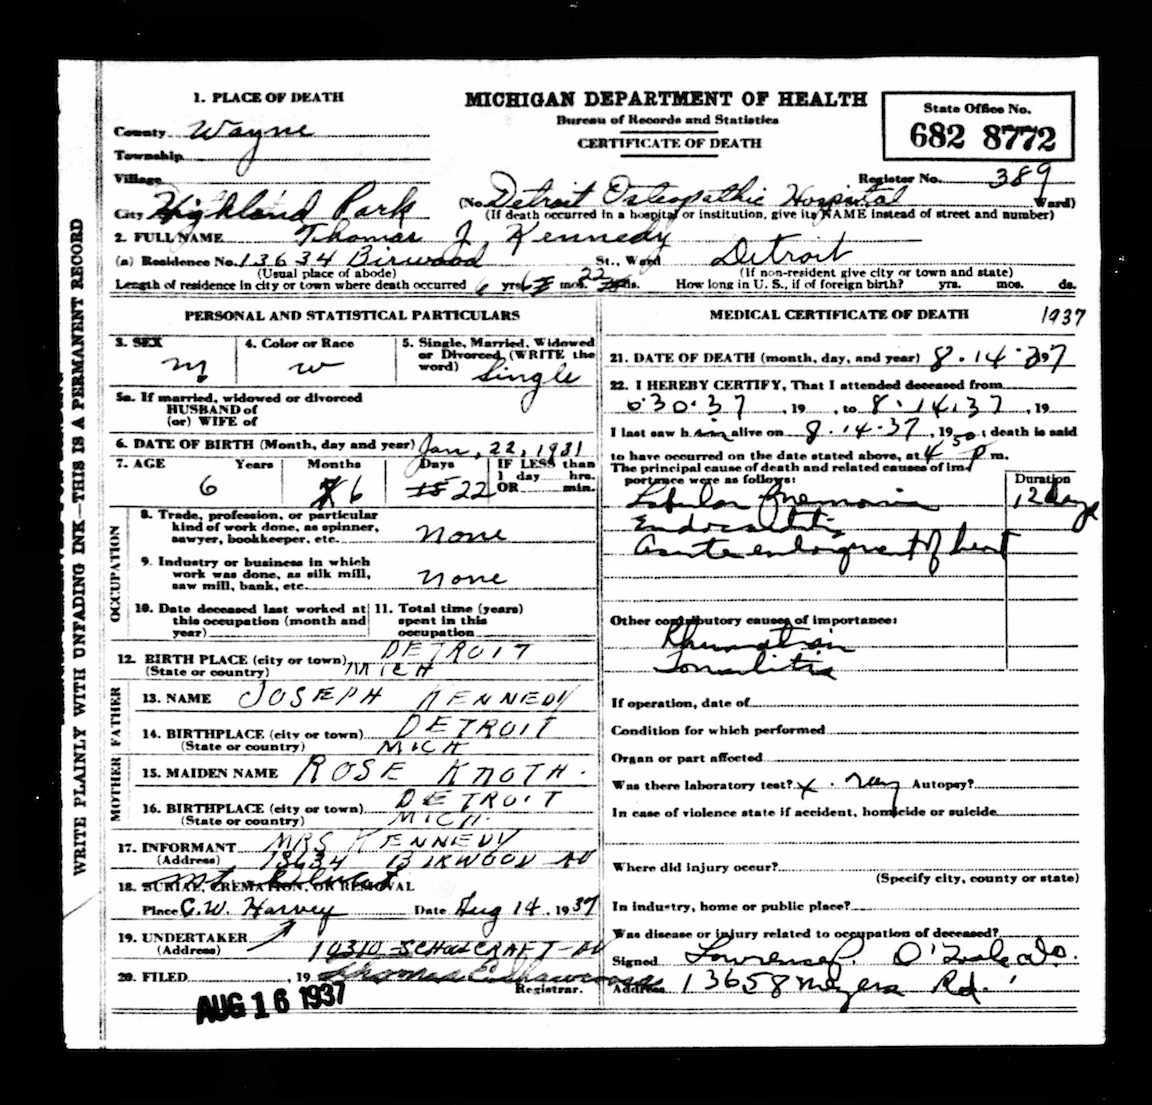 1. PLACE OF DEATH
County Wayne
Township
Village
City Highland Park
MICHIGAN DEPARTMENT OF HEALTH
Bureau of Records and Statistics
CERTIFICATE OF DEATH
State Office No.
682 8772
Register No. 389
(No. Detroit Osteopathic Hospital Ward)
(If death occurred in a hospital or institution, give its NAME instead of street and number)
2. FULL NAME Thomas J Kennedy
(a) Residence No. 13634 Birwood St., Ward Detroit
(Usual place of abode) (If non-resident give city or town and state)
Length of residence in city or town where death occurred 6 yrs. 6 mos. 22 ds. How long in U. S., if of foreign birth? yrs. mos. ds.
WRITE PLAINLY WITH UNFADING INK—THIS IS A PERMANENT RECORD
PERSONAL AND STATISTICAL PARTICULARS
3. SEX
M
4. Color or Race
W
5. Single, Married, Widowed
or Divorced, (WRITE the
word) Single
5a. If married, widowed or divorced
HUSBAND of
(or) WIFE of
6. DATE OF BIRTH (Month, day and year) Jan, 22, 1931
7. AGE Years Months Days IF LESS than
1 day hrs.
OR min.
6 6 22
OCCUPATION
8. Trade, profession, or particular
kind of work done, as spinner,
sawyer, bookkeeper, etc. none
9. Industry or business in which
work was done, as silk mill,
saw mill, bank, etc. none
10. Date deceased last worked at
this occupation (month and
year)
11. Total time (years)
spent in this
occupation
12. BIRTH PLACE (city or town) DETROIT
(State or country) MICH
FATHER
13. NAME JOSEPH KENNEDY
14. BIRTHPLACE (city or town) DETROIT
(State or country) MICH
MOTHER
15. MAIDEN NAME ROSE KNOTH.
16. BIRTHPLACE (city or town) DETROIT
(State or country) MICH.
17. INFORMANT MRS KENNEDY
(Address) 13634 BIRWOOD AV
Mt. Olivet
18. BURIAL, CREMATION, OR REMOVAL
Place C.W. Harvey Date Aug 14, 1937
19. UNDERTAKER
(Address) 10310 SCHOOLCRAFT-AV
20. FILED 19
Registrar.
AUG 16 1937
MEDICAL CERTIFICATE OF DEATH 1937
21. DATE OF DEATH (month, day, and year) 8.14.37
22. I HEREBY CERTIFY, That I attended deceased from
30.37, 19 , to 8.14.37, 19
I last saw him alive on 8.14.37, 19 ; death is said
to have occurred on the date stated above, at 4 50 P m.
The principal cause of death and related causes of im-
portance were as follows:
Duration
Lobular Pneumonia 12 days
Endocarditis
Acute enlargement of heart
Other contributory causes of importance:
Rheumatism
Tonsilitis
If operation, date of
Condition for which performed
Organ or part affected
Was there laboratory test? X-ray Autopsy?
In case of violence state if accident, homicide or suicide
Where did injury occur?
(Specify city, county or state)
In industry, home or public place?
Was disease or injury related to occupation of deceased?
Signed Lawrence P.
Address 13658 Meyers Rd.